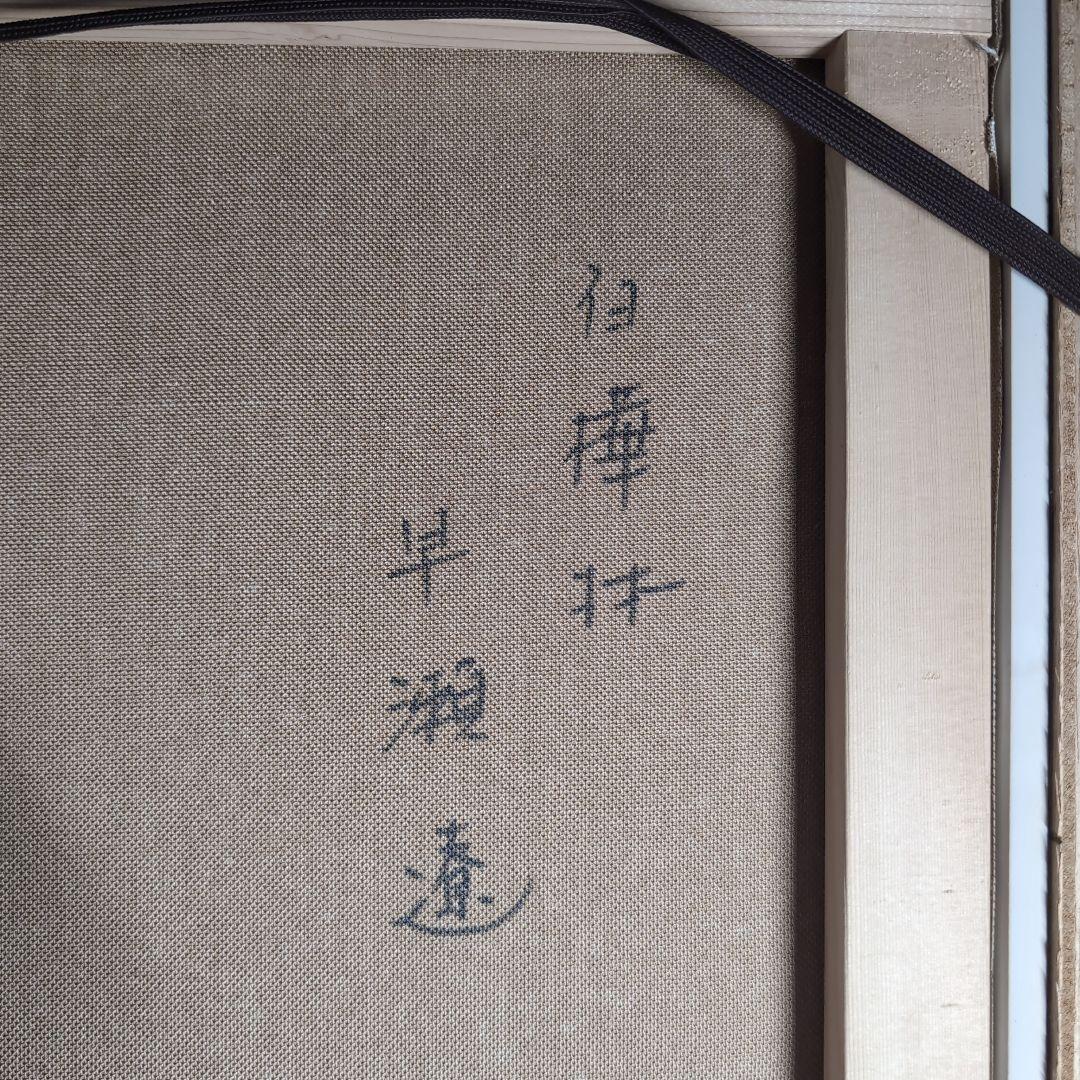 白樺林
早瀬遼